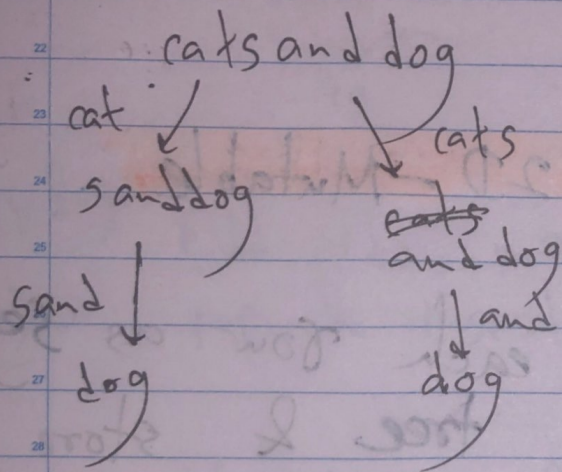 22
catsanddog
23
cat
cats
24
sanddog
cats
25
anddog
sand
and
27
dog
dog
28